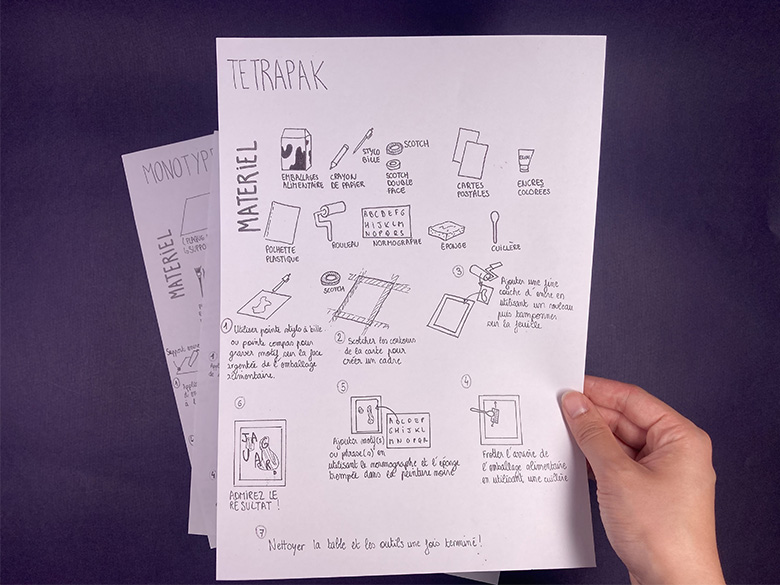 TETRAPAK
MATERIEL
EMBALLAGES
ALIMENTAIRE
CRAYON
DE PAPIER
STYLO
BILLE
SCOTCH
SCOTCH
DOUBLE
FACE
CARTES
POSTALES
ENCRES
COLOREES
POCHETTE
PLASTIQUE
ROULEAU
ABCDEFG
HIJKLM
NOPQRS
NORMOGRAPHE
ÉPONGE
CUILLÈRE
① Utiliser pointe stylo à bille
ou pointe compas pour
graver motif sur la face
argentée de l'emballage
alimentaire.
SCOTCH
② Scotcher les contours
de la carte pour
créer un cadre
③ Ajouter une fine
couche d'encre en
utilisant un rouleau
puis tamponner
sur la feuille
④
Frotter l'arrière de
l'emballage alimentaire
en utilisant une cuillère
⑤
ABCDEF
GHIJKL
MNOPQR
Ajouter motif(s)
ou phrase(s) en
utilisant le normographe et l'éponge
trempée dans la peinture noire
⑥
JA G
U AR
ADMIREZ LE
RESULTAT !
⑦
Nettoyer la table et les outils une fois terminé !
MONOTYPE
MATERIEL